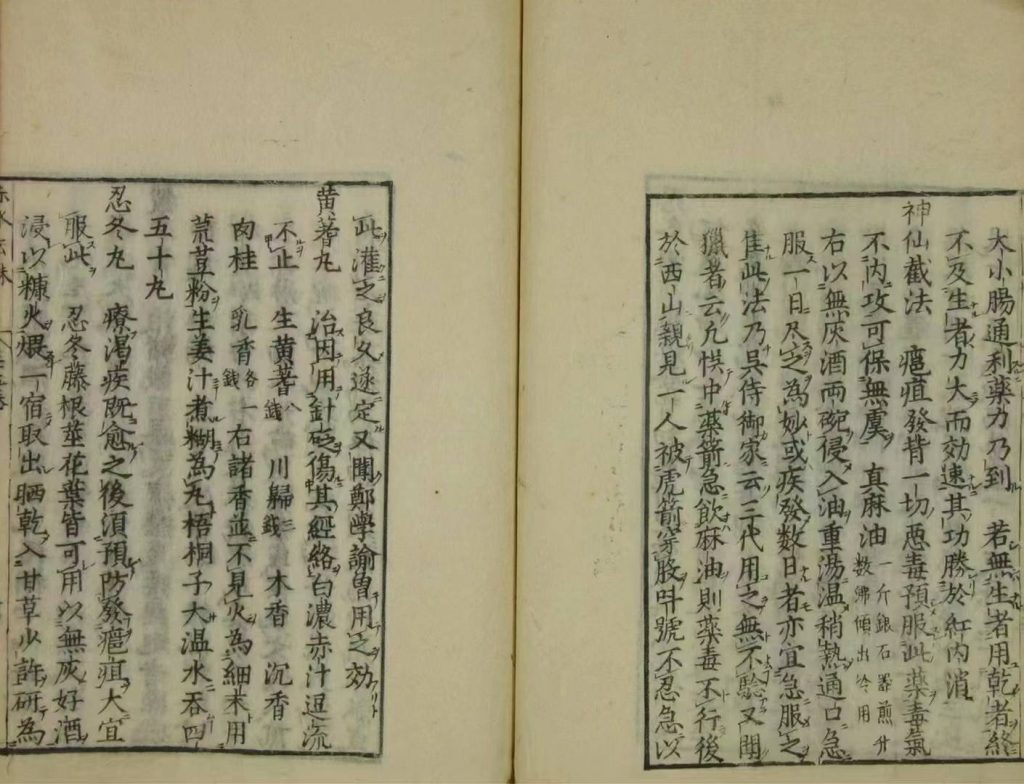 大小腸通利藥力乃到　若無生者用乾者終
不及生者力大而効速其功勝於紅内消
神仙截法　瘡疽發背一切惡毒預服此藥毒氣
不内攻可保無虞　真麻油一斤銀石器煎廾數沸傾出冷用
右以無灰酒兩碗侵入油重湯温稍熱通口急
服一日尽之為妙或疾發数日者亦宜急服之
此法乃吳侍御家云三代用之無不驗又聞
獵者云凢悞中藥箭急飲麻油則藥毒不行後
於西山親見一人被虎箭穿股呌號不忍急以
此灌之良久遂定又聞鄭學諭曽用之効
黄耆丸　治因用針砭傷其經絡白濃赤汁逗流
不止　生黄耆八錢　川歸三錢　木香　沉香
肉桂　乳香各一錢　右諸香並不見火為細末用
荒荳粉生姜汁煮糊為丸梧桐子大温水吞四
五十丸
忍冬丸　療渴疾既愈之後須預防發瘡疽大宜
服此　忍冬藤根莖花葉皆可用以無灰好酒
浸以糠火煨一宿取出晒乾入甘草少許研為